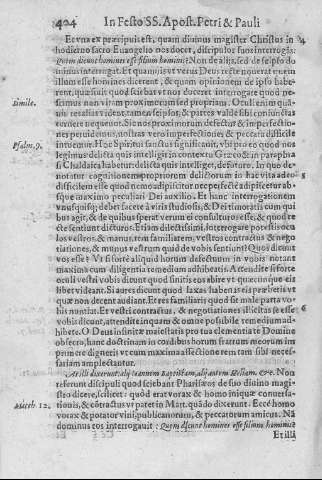 424 In Festo SS. Apost. Petri & Pauli
Et vna ex præcipuis est, quam diuinus magister Christus in 4
hodierno sacro Euangelio nos docet, discipulos suos interrogãs:
Quem dicunt homines esse filium hominis? Non de alijs, sed de seipso do
minus interrogat. Et quamuis vt verus Deus recte nouerat quem
illum homines dicerent, & ita responsione non
indigeret, quæsiuit quod sciebat vt nos doceret interrogare quod ne-
Simile. scimus non vitam proximorum sed propriam. Oculi enim quãuis
res alias videant, tamen seipsos, & partes valde sibi coniunctas
videre nequeunt. Sic nos proximorum defectus & imperfectio-
nes peruidemus, nostras vero imperfectiones & peccata difficile
Psalm. 9. intuemur. Hoc Spiritus sanctus significauit, vbi pro eo quod nos
legimus delicta quis intelligit? in contextu Græco & in paraphra
si Chaldaica habetur delicta quis intelliget, de futuro. In quo de-
notatur cognitionem propriorum delictorum in hac vita adeo 5
difficilem esse quod nemo adipiscitur nec perfectè adipiscetur abs-
que maximo peculiari Dei auxilio. Et hanc interrogationem
vnusquisque debet facere à viris studiosis, & Dei timoratis cum qui
bus agit, & de quibus sperat verum ei consulturos esse, & quod re
cte sentiunt dicturos. Etiam dilectissimi, interrogare potestis ocu
los vestros, & manus, tem familiarem, vestros contractus & nego
tiationes, & munus vestrum quid de vobis sentiunt? Quod dicunt
vos esse? Vt si forte aliquid horum defectuum in vobis notant
maxima cum diligentia remedium adhibeatis. Attendite si forte
oculi vestri vobis dicunt quod sinitis eos abire vt quæcunque eis
libet videant. Si aures dicunt quod laxas habenas eis præbetis vt
quæ non decent audiant. Et res familiaris quod sit male parta vo-
bis nuntiat. Et vestri contractus, & negotiationes illicitas se esse 6
vobis dicunt, attendite in quam & omne possibile remedium ad-
hibete. O Deus infinitæ maiestatis pro tua clementia te Domine
obsecro, hanc doctrinam in cordibus horum fratrum meorum im
primere digneris vt cum maxima affectione rem tam sibi neces-
sariam amplectantur.
At illi dixerunt, alij Ioannem Baptistam, alij autem Heliam, &c. Non
referunt discipuli quod sciebant Pharisæos de suo diuino magi-
stro dicere, scilicet: quòd erat vorax & homo iniquæ conuersa-
Matth. 12. tionis, & cõtractus vt patet in Matt. quãdo dixerunt. Ecce homo
vorax & potator vini & publicanorum, & peccatorum amicus. Nã
dominus eos interrogauit: Quem dicunt homines esse filium hominis
Et illi